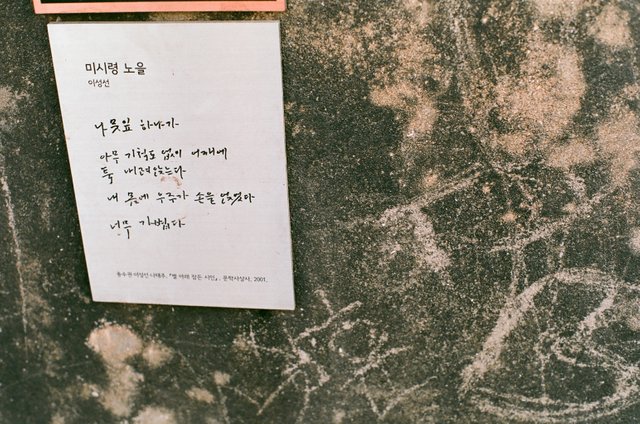 미시령 노을
이성선
나뭇잎 하나가
아무 기척도 없이 어깨에
툭 내려앉는다
내 몸에 우주가 손을 얹었다
너무 가볍다
송수권 이성선 나태주, 『별 아래 잠든 시인』, 문학사상사, 2001.